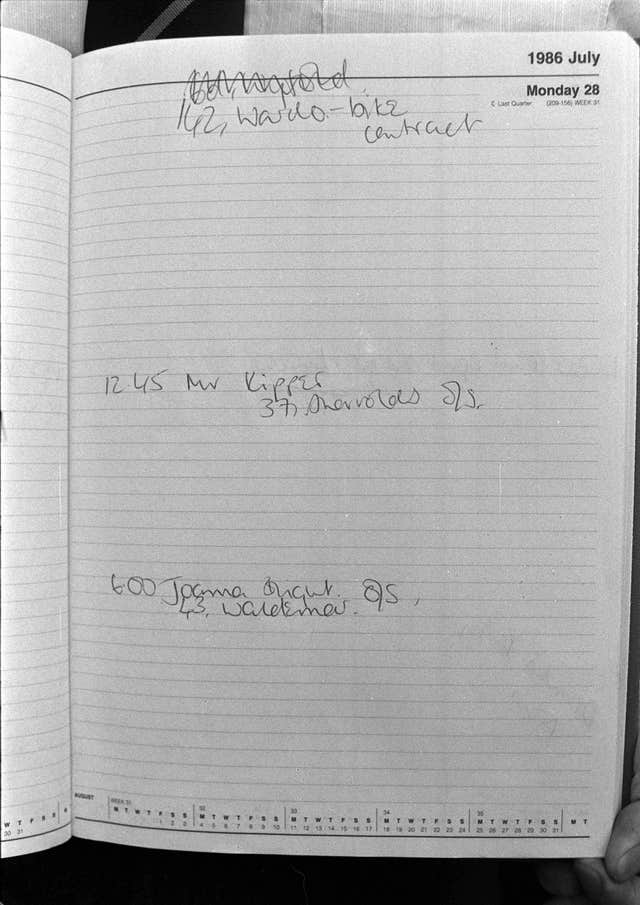 1986 July
Monday 28
☾ Last Quarter (209-156) WEEK 31
142, Wardo - bike
contract
12 45 Mr Kipper
37, Shorrolds O/S.
6.00 Joanna
43, Waldemar.
AUGUST
WEEK 31 32 33 34 35
W T F S S M T W T F S S M T W T F S S M T W T F S S M T W T F S S M T W T F S S M T
30 31 1 2 3 4 5 6 7 8 9 10 11 12 13 14 15 16 17 18 19 20 21 22 23 24 25 26 27 28 29 30 31